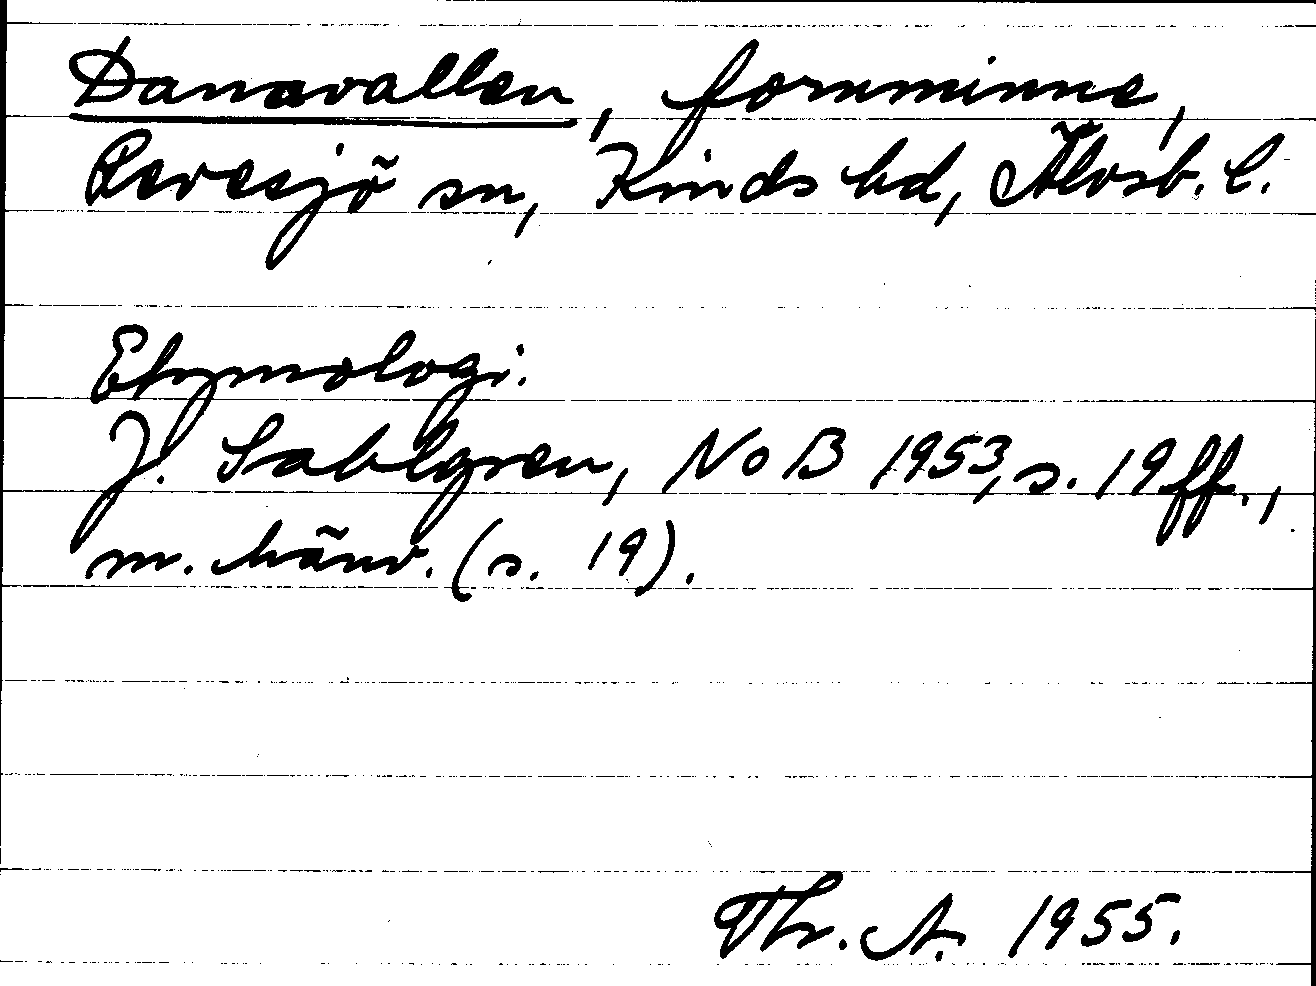 Danavallen, fornminne,
Revesjö sn, Kinds hd, Älvsb. l.
Etymologi.
J. Sahlgren, NoB 1953, s. 19 ff.,
m. hänv. (s. 19).
Thr. A. 1955.